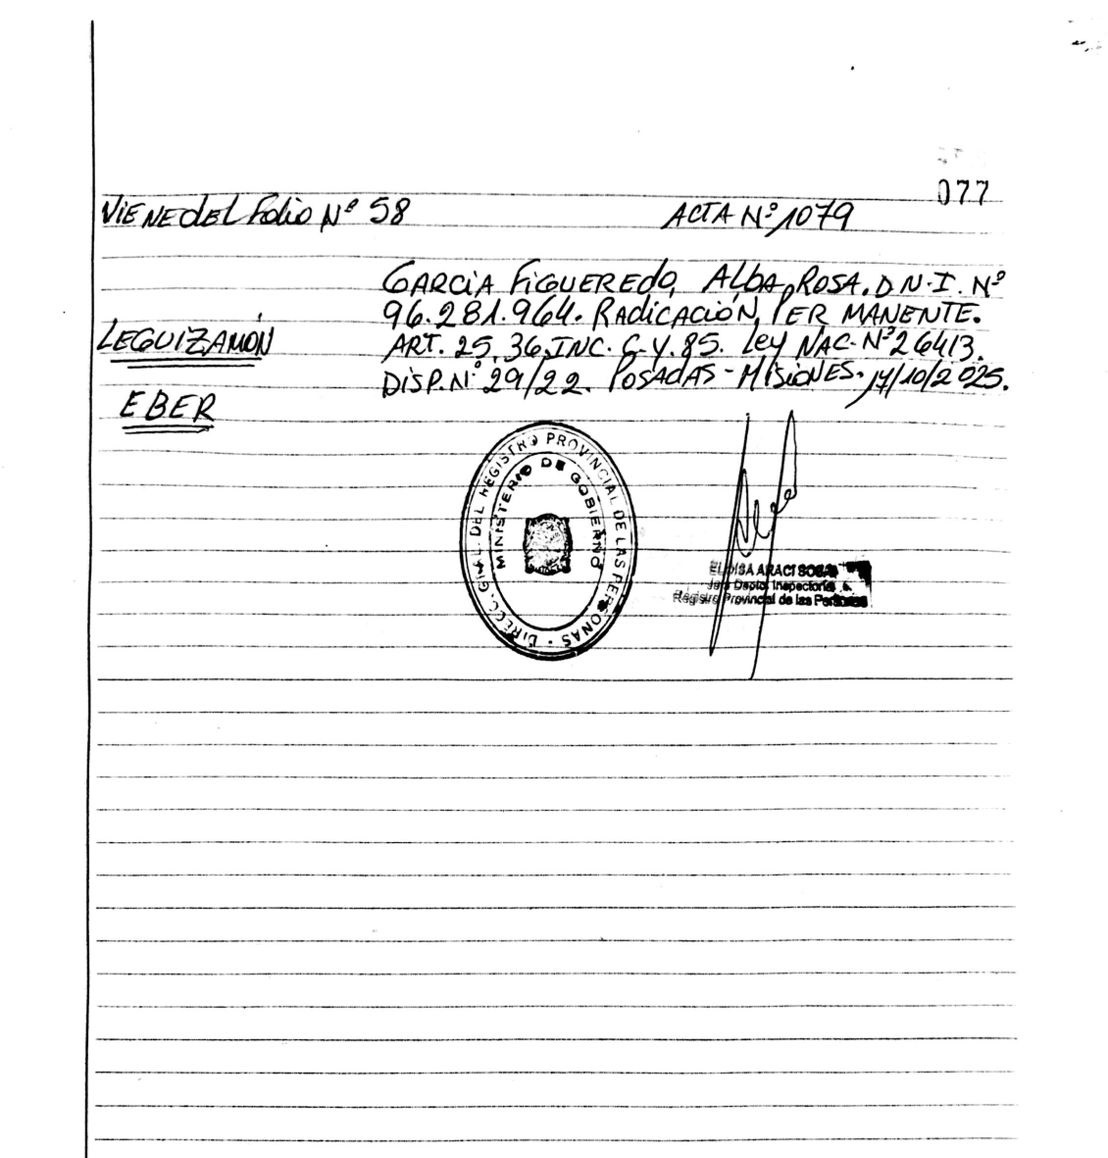 077
Viene del Folio Nº 58
ACTA Nº 1079
GARCIA FIGUEREDO, ALBA ROSA. D.N.I. Nº
96.281.964. RADICACIÓN PERMANENTE.
LEGUIZAMÓN
ART. 25, 36, INC. C. Y. 85. Ley NAC. Nº 26413.
DISP. Nº 29/22. POSADAS - MISIONES. 17/10/2025.
EBER
DIRECC. GRAL. DEL REGISTRO PROVINCIAL DE LAS PERSONAS
MINISTERIO DE GOBIERNO
ELOISA ARACI SOSA
Jefe Deptol Inspectoria
Registro Provincial de las Personas